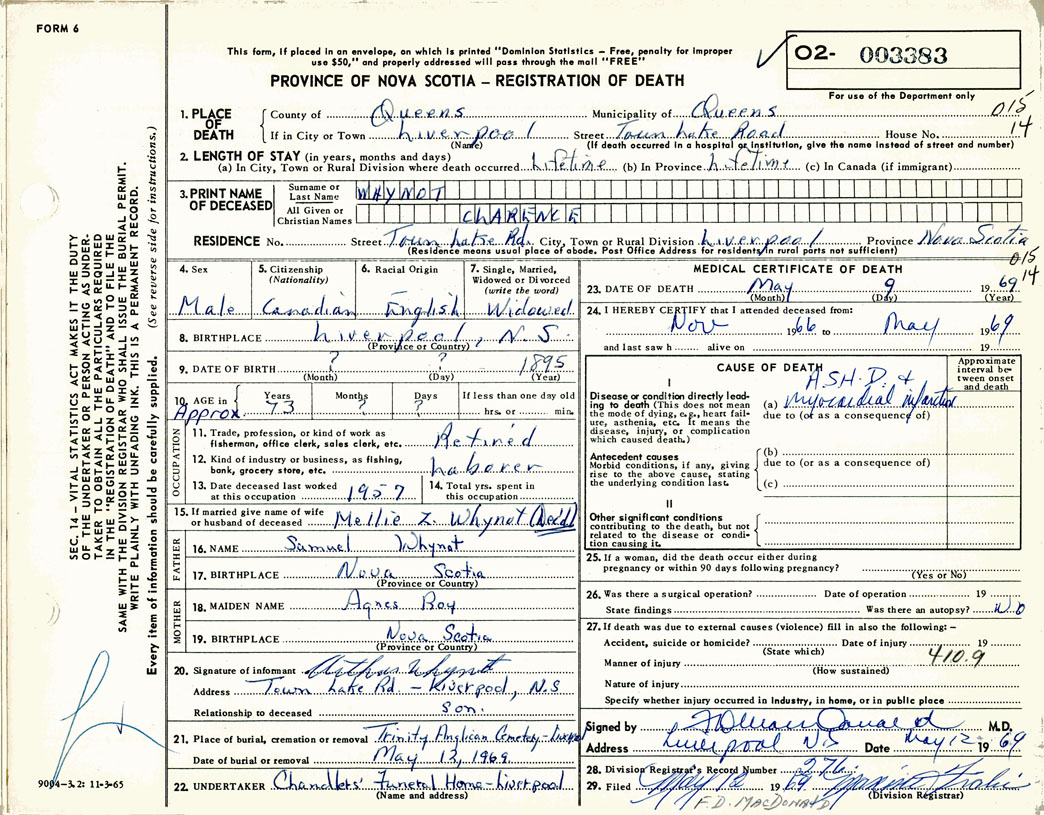 FORM 6
This form, if placed in an envelope, on which is printed "Dominion Statistics – Free, penalty for improper
use $50," and properly addressed will pass through the mail "FREE"
PROVINCE OF NOVA SCOTIA – REGISTRATION OF DEATH
O2- 003383
For use of the Department only
015
14
1. PLACE OF DEATH
County of Queens Municipality of Queens
If in City or Town Liverpool Street Town Lake Road House No.
(Name) (If death occurred in a hospital or institution, give the name instead of street and number)
2. LENGTH OF STAY (in years, months and days)
(a) In City, Town or Rural Division where death occurred Lifetime (b) In Province Lifetime (c) In Canada (if immigrant)
3. PRINT NAME OF DECEASED
Surname or Last Name WHYNOT
All Given or Christian Names CLARENCE
RESIDENCE No. Street Town Lake Rd. City, Town or Rural Division Liverpool Province Nova Scotia
(Residence means usual place of abode. Post Office Address for residents in rural parts not sufficient)
015
14
4. Sex Male
5. Citizenship (Nationality) Canadian
6. Racial Origin English
7. Single, Married, Widowed or Divorced (write the word) Widowed
8. BIRTHPLACE Liverpool, N.S.
(Province or Country)
9. DATE OF BIRTH ? ? 1895
(Month) (Day) (Year)
10. AGE in Years Months Days If less than one day old
Approx. 73 ? ? hrs. or min.
OCCUPATION
11. Trade, profession, or kind of work as
fisherman, office clerk, sales clerk, etc. Retired
12. Kind of industry or business, as fishing,
bank, grocery store, etc. Laborer
13. Date deceased last worked
at this occupation 1957
14. Total yrs. spent in
this occupation
15. If married give name of wife
or husband of deceased Mellie Z. Whynot (Dec'd)
FATHER
16. NAME Samuel Whynot
17. BIRTHPLACE Nova Scotia
(Province or Country)
MOTHER
18. MAIDEN NAME Agnes Roy
19. BIRTHPLACE Nova Scotia
(Province or Country)
20. Signature of informant Arthur Whynot
Address Town Lake Rd. – Liverpool, N.S
Relationship to deceased Son.
21. Place of burial, cremation or removal Trinity Anglican Cemetery – Liverpool
Date of burial or removal May 13, 1969
22. UNDERTAKER Chandlers' Funeral Home – Liverpool
(Name and address)
MEDICAL CERTIFICATE OF DEATH
23. DATE OF DEATH May 9 1969
(Month) (Day) (Year)
24. I HEREBY CERTIFY that I attended deceased from:
Nov 1966 to May 1969
and last saw h alive on 19
CAUSE OF DEATH
Approximate interval between onset and death
I
Disease or condition directly leading to death (This does not mean the mode of dying, e.g., heart failure, asthenia, etc. It means the disease, injury, or complication which caused death.)
A.S.H.D. &
(a) Myocardial infarction
due to (or as a consequence of)
Antecedent causes
Morbid conditions, if any, giving rise to the above cause, stating the underlying condition last.
(b)
due to (or as a consequence of)
(c)
II
Other significant conditions contributing to the death, but not related to the disease or condition causing it.
25. If a woman, did the death occur either during
pregnancy or within 90 days following pregnancy?
(Yes or No)
26. Was there a surgical operation? Date of operation 19
State findings Was there an autopsy? No
27. If death was due to external causes (violence) fill in also the following: –
Accident, suicide or homicide? Date of injury 19
(State which) 410.9
Manner of injury
(How sustained)
Nature of injury
Specify whether injury occurred in industry, in home, or in public place
Signed by F D MacDonald M.D.
Address Liverpool NS Date May 12 1969
28. Division Registrar's Record Number 276
29. Filed May 12 1969
(Division Registrar)
F.D. MACDONALD
SEC. 14 – VITAL STATISTICS ACT MAKES IT THE DUTY
OF THE UNDERTAKER OR PERSON ACTING AS UNDER-
TAKER TO OBTAIN ALL THE PARTICULARS REQUIRED
IN THE "REGISTRATION OF DEATH" AND TO FILE THE
SAME WITH THE DIVISION REGISTRAR WHO SHALL ISSUE THE BURIAL PERMIT.
WRITE PLAINLY WITH UNFADING INK. THIS IS A PERMANENT RECORD.
Every item of information should be carefully supplied. (See reverse side for instructions.)
9004-3.2: 11-3-65